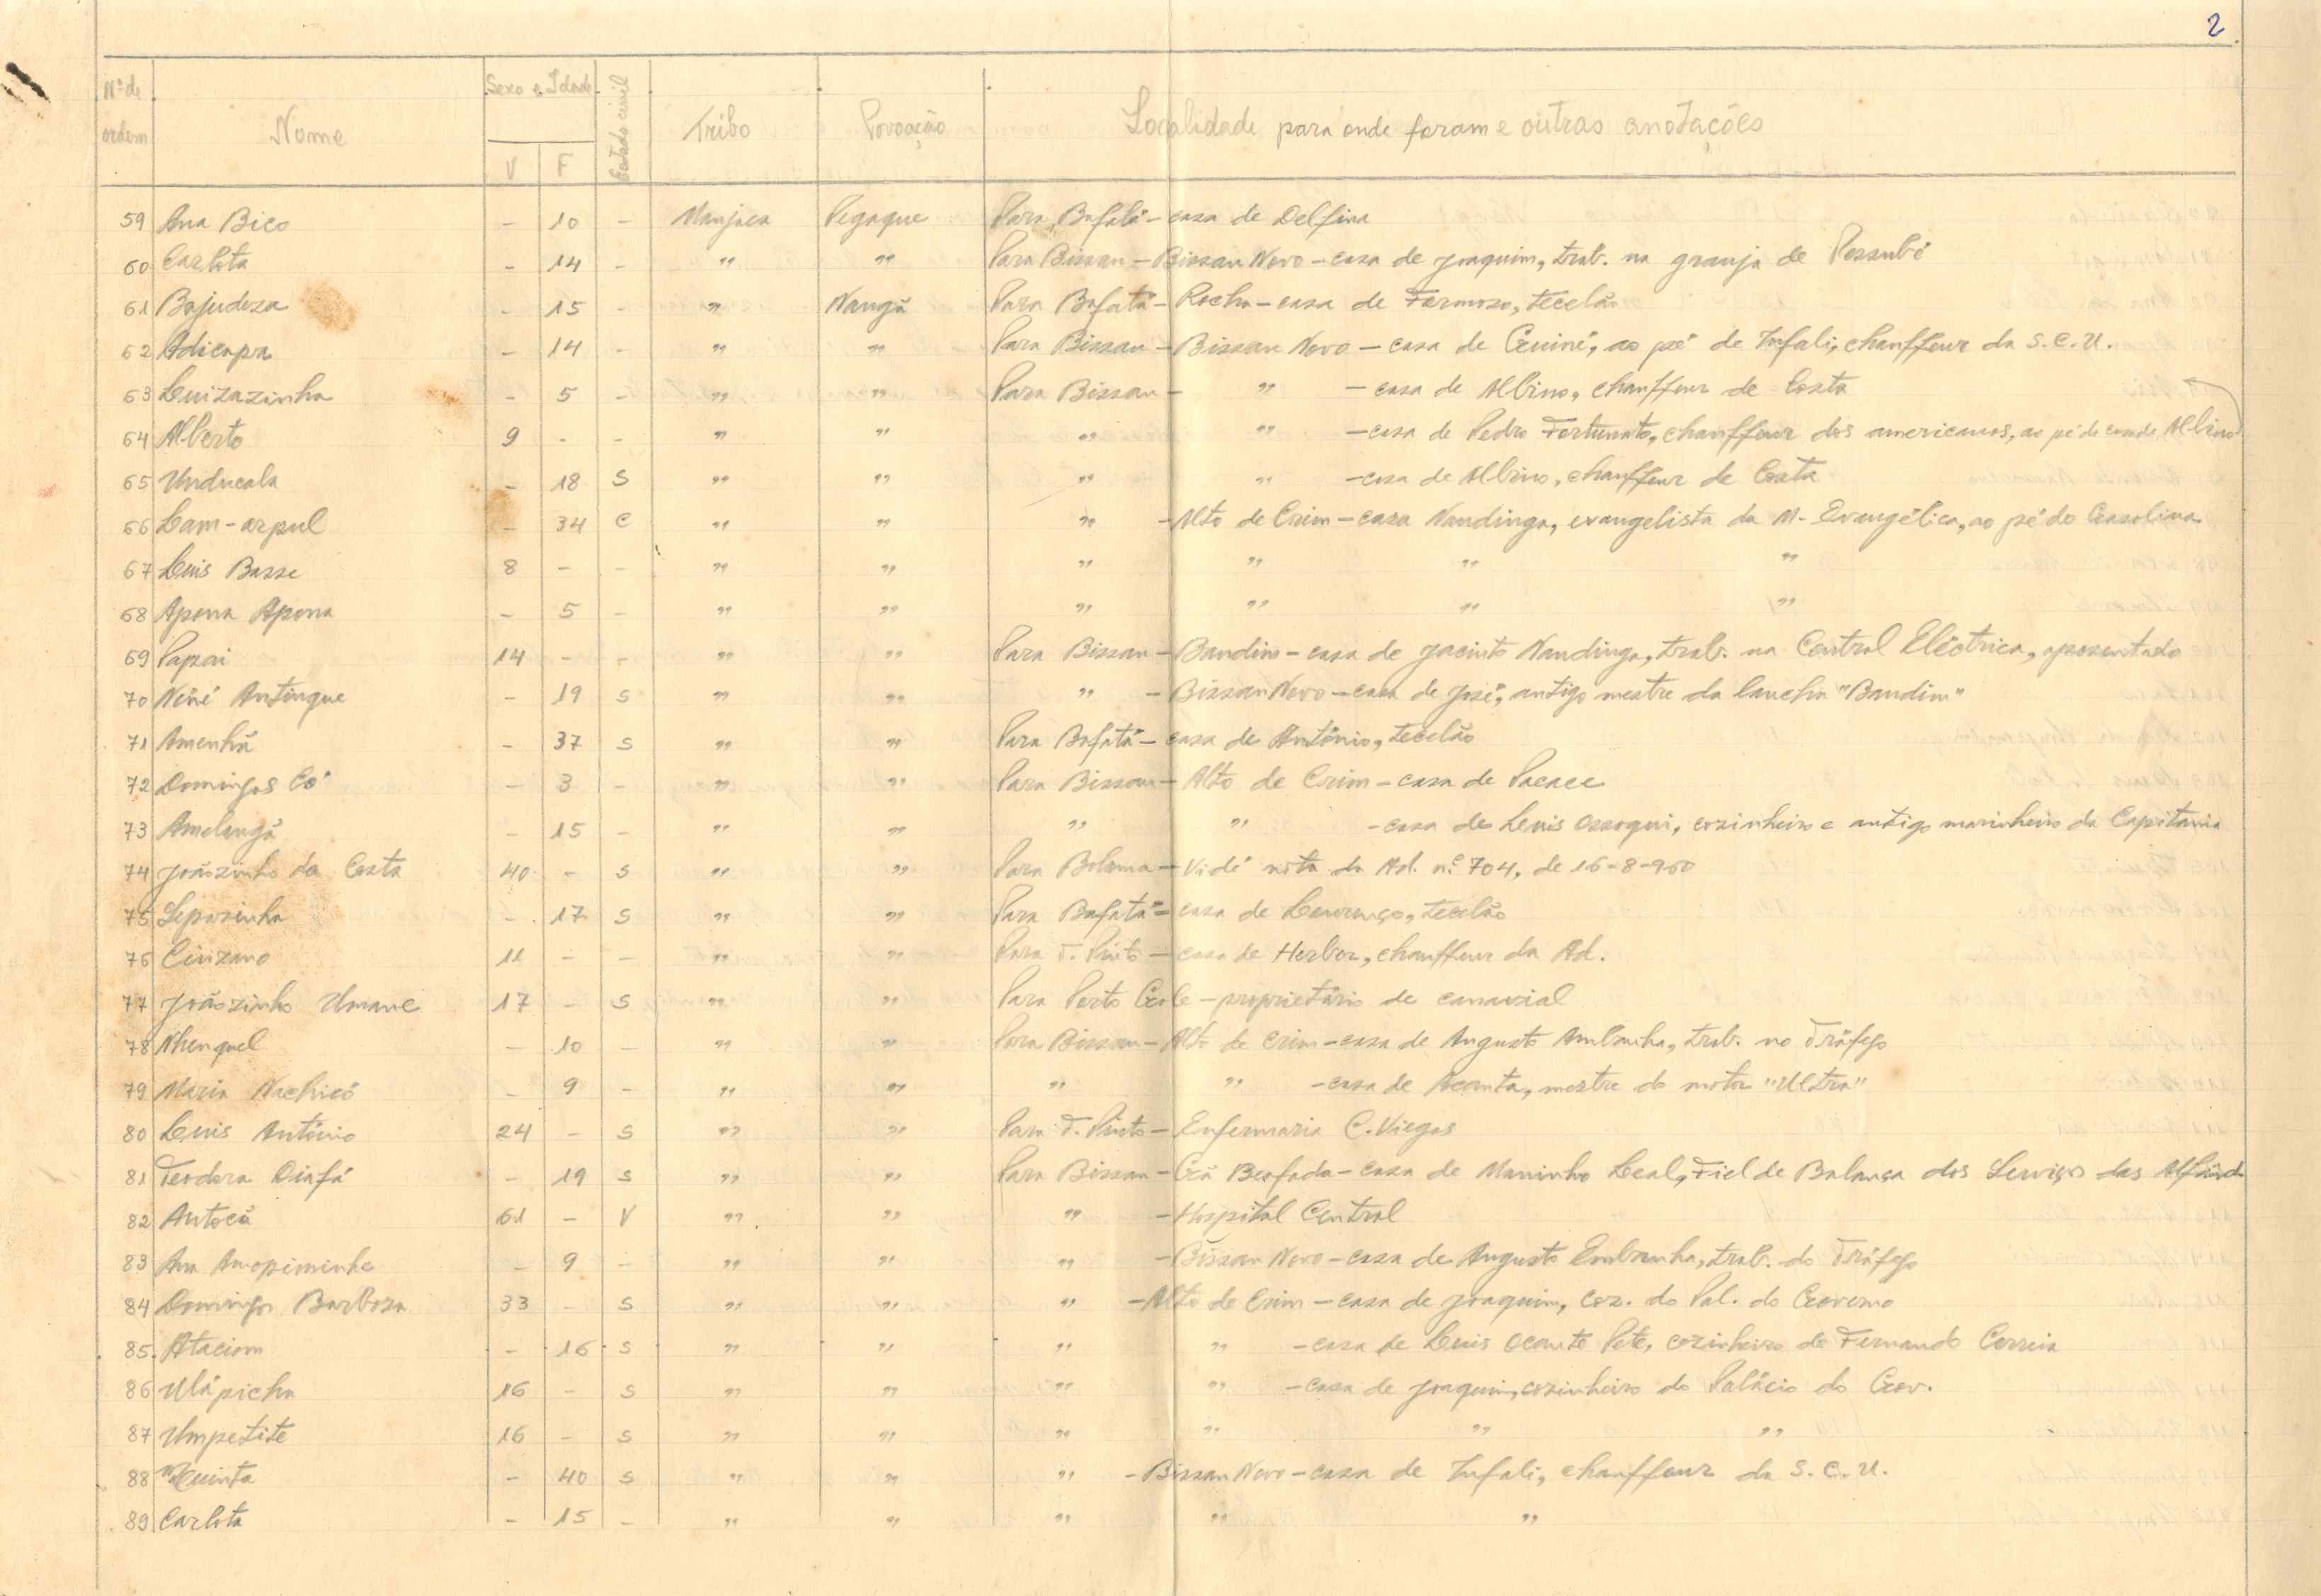 2
Nº de ordem Nome Sexo e Idade V F Estado civil Tribo Povoação Localidade para onde foram e outras anotações
59 Ana Bico - 10 - Manjaca Pegaque Para Bafatá - casa de Delfina
60 Carlota - 14 - " " Para Bissau - Bissau Novo - casa de Joaquim, trab. na granja de Pessubé
61 Bajudeza - 15 - " Nangã Para Bafatá - Rocha - casa de Formoso, tecelão
62 Adicapra - 14 - " " Para Bissau - Bissau Novo - casa de Guiné, ao pé de Infali, chauffeur da S.C.U.
63 Luizazinha - 5 - " " Para Bissau - " - casa de Albino, chauffeur de Costa
64 Alberto 9 - - " " " " - casa de Pedro Fortunato, chauffeur dos americanos, ao pé de casa de Albino
65 Unducala - 18 S " " " " - casa de Albino, chauffeur de Costa
66 Lam-arpul - 34 C " " " - Alto de Crim - casa Nandinga, evangelista da M. Evangélica, ao pé do Gasolina
67 Luis Basse 8 - - " " " " " "
68 Apena Apena - 5 - " " " " " "
69 Papai 14 - - " " Para Bissau - Bandim - casa de Jacinto Nandinga, trab. na Central Eléctrica, aposentado
70 Nené Antingue - 19 S " " " - Bissau Novo - casa de José, antigo mestre da lancha "Bandim"
71 Amenhã - 37 S " " Para Bafatá - casa de António, tecelão
72 Domingas Có - 3 - " " Para Bissau - Alto de Crim - casa de Pacace
73 Amelangã - 15 - " " " " - casa de Luis Ossoqui, cozinheiro e antigo marinheiro da Capitania
74 Joãozinho da Costa 40 - S " " Para Bolama - Vidé nota da Ad. nº 704, de 16-8-960
75 Leporinha - 17 S " " Para Bafatá - casa de Lourenço, tecelão
76 Cinzano 11 - - " " Para T. Pinto - casa de Herber, chauffeur da Ad.
77 Joãozinho Umane 17 - S " " Para Porto Gole - proprietário de canavial
78 Nhenquel - 10 - " " Para Bissau - Alto de Crim - casa de Augusto Ambanha, trab. no Tráfego
79 Maria Nachicó - 9 - " " " " - casa de Acanta, mestre do motor "Ultra"
80 Luis António 24 - S " " Para T. Pinto - Enfermaria C. Viegas
81 Teodora Diafá - 19 S " " Para Bissau - Crã Beafada - casa de Maninho Leal, Fiel de Balança dos Serviços das Alfând.
82 Antocã 61 - V " " " - Hospital Central
83 Ana Amopiminha - 9 - " " " - Bissau Novo - casa de Augusto Embanha, trab. do Tráfego
84 Domingos Barbosa 33 - S " " " - Alto de Crim - casa de Joaquim, coz. do Pal. do Governo
85 Ataciom - 16 S " " " " - casa de Luis Ocante Pete, cozinheiro de Fernando Correia
86 Ulápicha 16 - S " " " " - casa de Joaquim, cozinheiro do Palácio do Gov.
87 Umpetite 16 - S " " " " " "
88 Quinta - 40 S " " " - Bissau Novo - casa de Infali, chauffeur da S.C.U.
89 Carlota - 15 - " " " " "